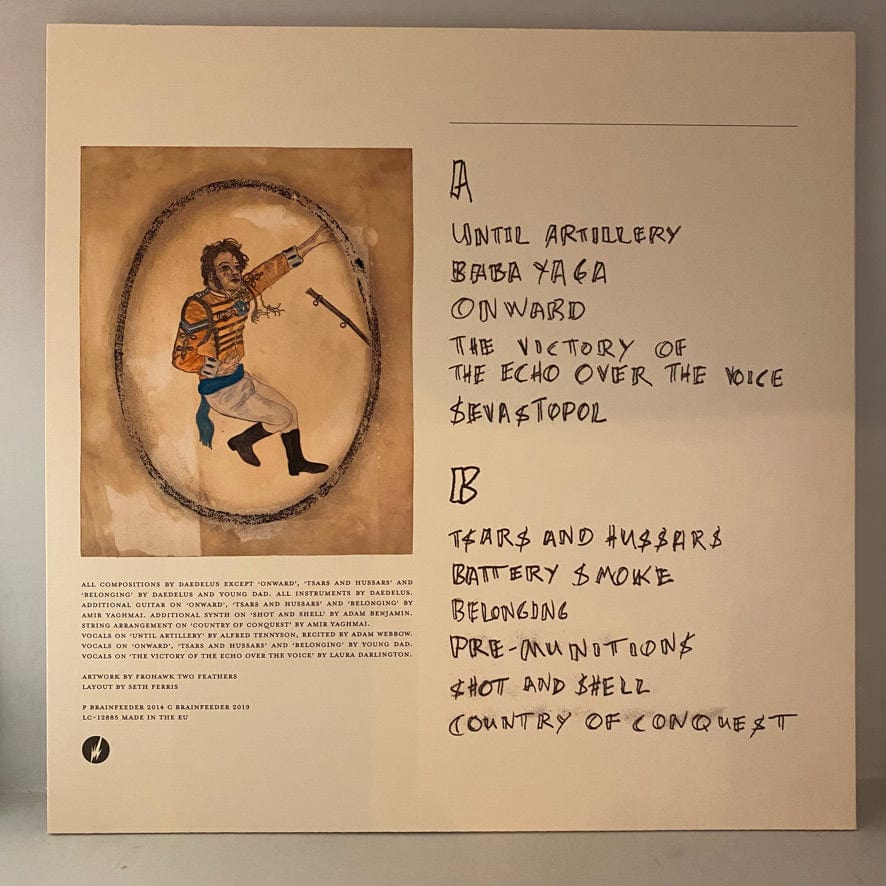 A
UNTIL ARTILLERY
BABA YAGA
ONWARD
THE VICTORY OF
THE ECHO OVER THE VOICE
$EVA$TOPOL
B
T$AR$ AND HU$$AR$
BATTERY $MOKE
BELONGING
PRE-MUNITION$
$HOT AND $HELL
COUNTRY OF CONQUE$T
ALL COMPOSITIONS BY DAEDELUS EXCEPT ‘ONWARD’, ‘TSARS AND HUSSARS’ AND
‘BELONGING’ BY DAEDELUS AND YOUNG DAD. ALL INSTRUMENTS BY DAEDELUS.
ADDITIONAL GUITAR ON ‘ONWARD’, ‘TSARS AND HUSSARS’ AND ‘BELONGING’ BY
AMIR YAGHMAI. ADDITIONAL SYNTH ON ‘SHOT AND SHELL’ BY ADAM BENJAMIN.
STRING ARRANGEMENT ON ‘COUNTRY OF CONQUEST’ BY AMIR YAGHMAI.
VOCALS ON ‘UNTIL ARTILLERY’ BY ALFRED TENNYSON, RECITED BY ADAM WEBBOW.
VOCALS ON ‘ONWARD’, ‘TSARS AND HUSSARS’ AND ‘BELONGING’ BY YOUNG DAD.
VOCALS ON ‘THE VICTORY OF THE ECHO OVER THE VOICE’ BY LAURA DARLINGTON.
ARTWORK BY FROHAWK TWO FEATHERS
LAYOUT BY SETH FERRIS
P BRAINFEEDER 2014 C BRAINFEEDER 2019
LC-12885 MADE IN THE EU